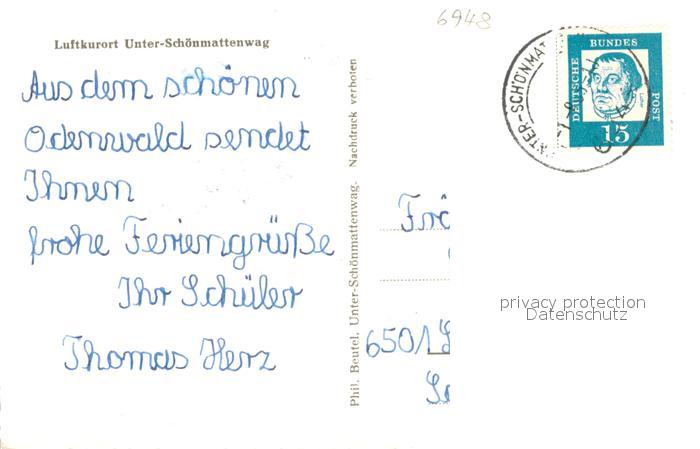 6948
Luftkurort Unter-Schönmattenwag
Aus dem schönen
Odenwald sendet
Ihnen
frohe Feriengrüße
Ihr Schüler
Thomas Herz
Phil. Beutel, Unter-Schönmattenwag. Nachdruck verboten
6501
UNTER-SCHÖNMAT
DEUTSCHE BUNDES POST
15
privacy protection
Datenschutz